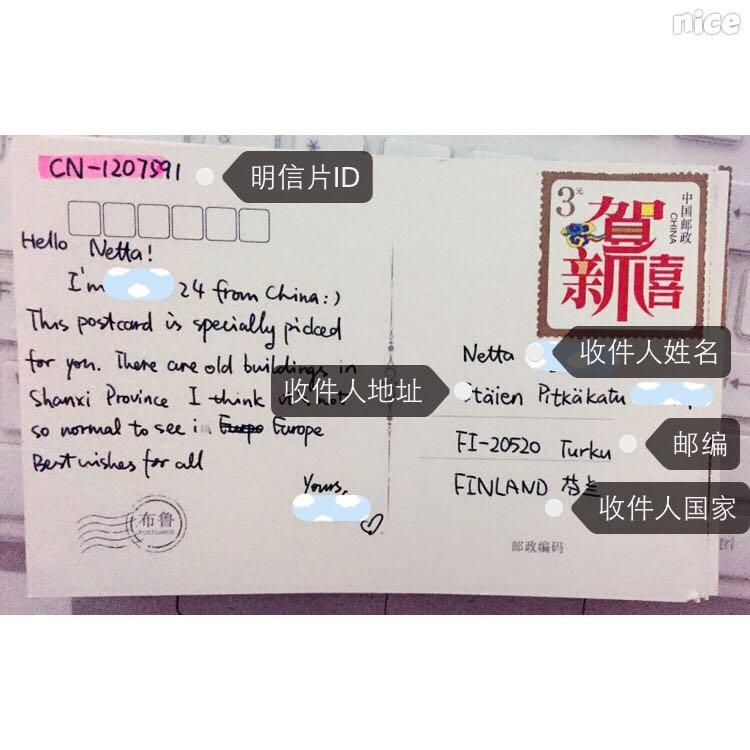 nice
CN-1207591
明信片ID
3元
中国邮政
CHINA
贺
新禧
Hello Netta!
I'm 24 from China:)
This postcard is specially picked
for you. There are old buildings in
Shanxi Province I think not
so normal to see i Europe
Best wishes for all
Yours,
布鲁
POSTCARDS
Netta
收件人姓名
收件人地址
Stäien Pitkäkatu
FI-20520 Turku
邮编
FINLAND 芬兰
收件人国家
邮政编码